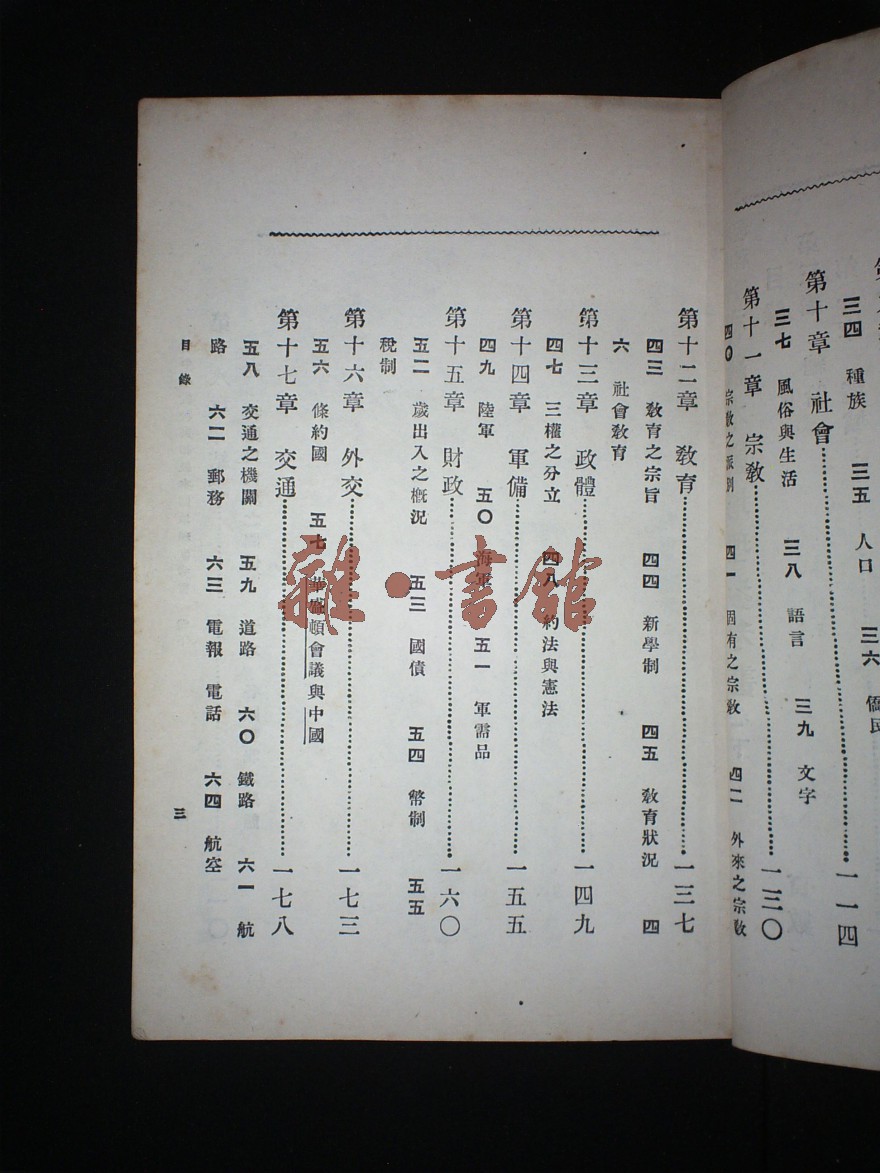 三四　種族　三五　人口　三六　僑民
第十章　社會……一一四
三七　風俗與生活　三八　語言　三九　文字
第十一章　宗教……一三〇
四〇　宗教之派別　四一　固有之宗教　四二　外來之宗教
第十二章　教育……一三七
四三　教育之宗旨　四四　新學制　四五　教育狀況　四
六　社會教育
第十三章　政體……一四九
四七　三權之分立　四八　約法與憲法
第十四章　軍備……一五五
四九　陸軍　五〇　海軍　五一　軍需品
第十五章　財政……一六〇
五二　歲出入之概況　五三　國債　五四　幣制　五五
稅制
第十六章　外交……一七三
五六　條約國　五七　華盛頓會議與中國
第十七章　交通……一七八
五八　交通之機關　五九　道路　六〇　鐵路　六一　航
路　六二　郵務　六三　電報　電話　六四　航空
目錄　三
雜·書館